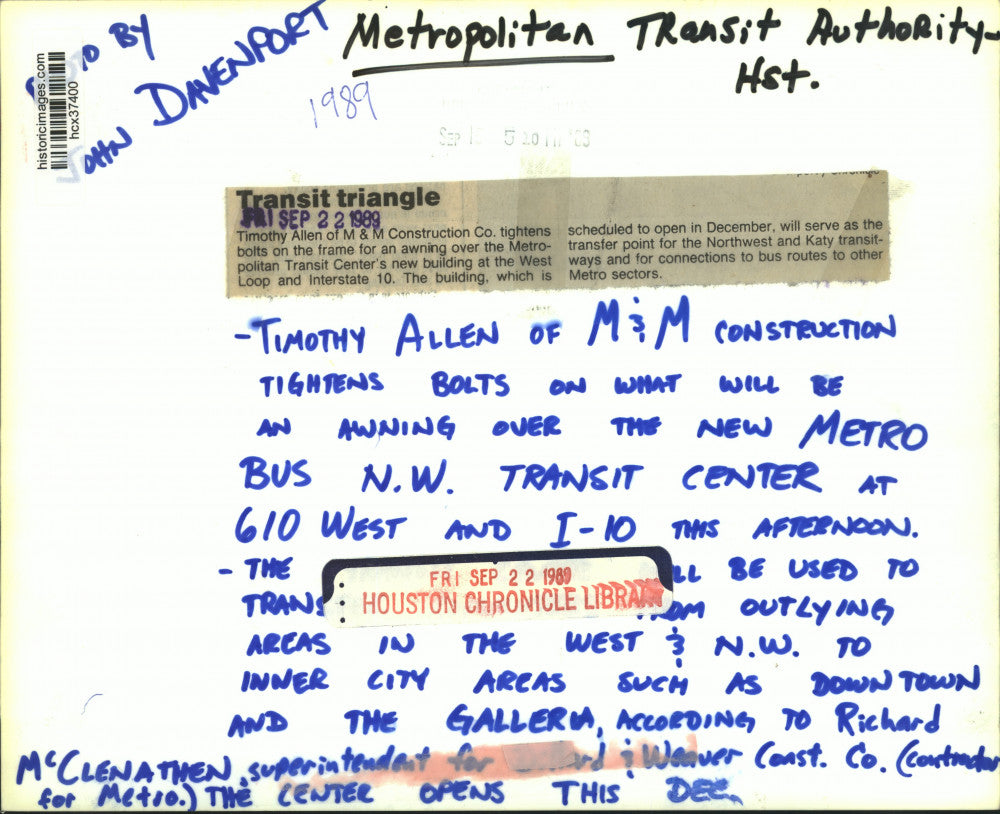 PHOTO BY
JOHN DAVENPORT
historicimages.com
hcx37400
Metropolitan Transit Authority-
Hst.
1989
SEP
Transit triangle
FRI SEP 22 1989
Timothy Allen of M & M Construction Co. tightens
bolts on the frame for an awning over the Metro-
politan Transit Center's new building at the West
Loop and Interstate 10. The building, which is
scheduled to open in December, will serve as the
transfer point for the Northwest and Katy transit-
ways and for connections to bus routes to other
Metro sectors.
-TIMOTHY ALLEN OF M & M CONSTRUCTION
TIGHTENS BOLTS ON WHAT WILL BE
AN AWNING OVER THE NEW METRO
BUS N.W. TRANSIT CENTER AT
610 WEST AND I-10 THIS AFTERNOON.
- THE LL BE USED TO
TRANS OM OUTLYING
FRI SEP 22 1989
HOUSTON CHRONICLE LIBRARY
AREAS IN THE WEST & N.W. TO
INNER CITY AREAS SUCH AS DOWNTOWN
AND THE GALLERIA, ACCORDING TO Richard
McCLENATHEN, superintendent for rd & Weaver Const. Co. (contractor
for Metro.) THE CENTER OPENS THIS DEC.